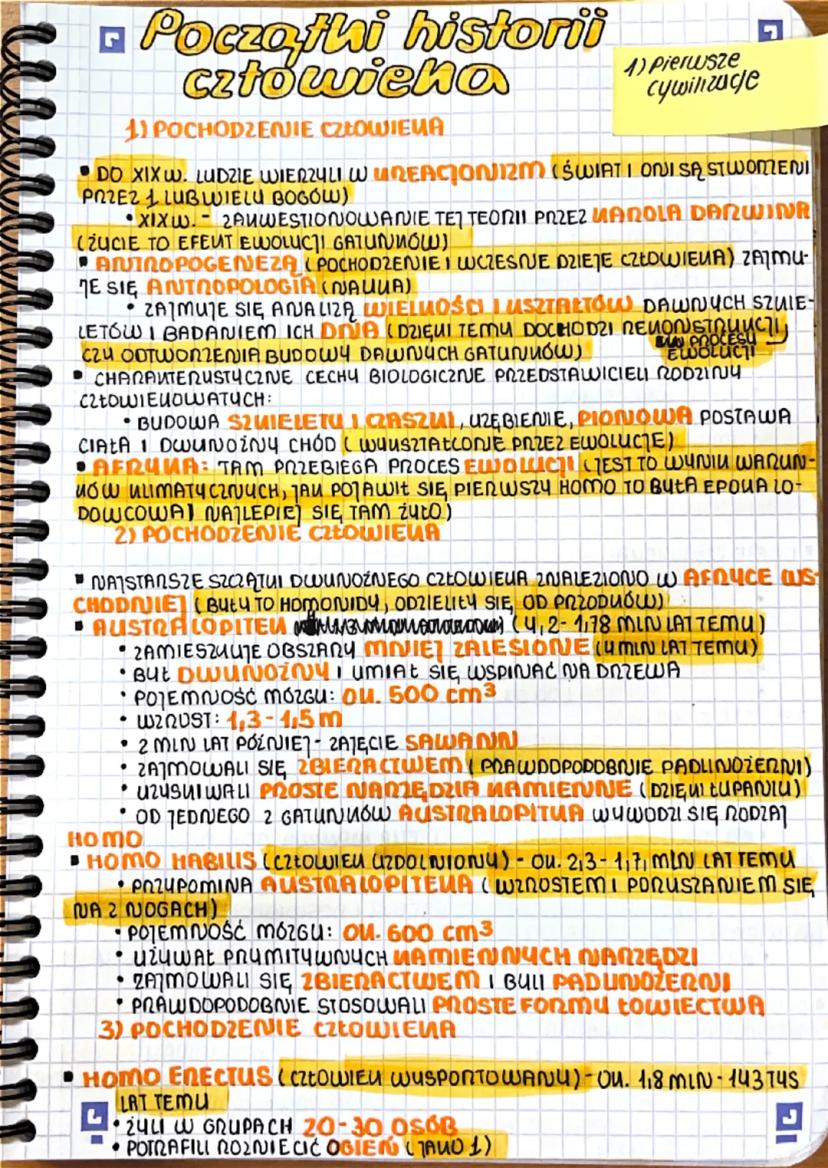 Początki historii
człowieka
1) Pierwsze
cywilizacje
1) POCHODZENIE CZŁOWIEKA
▪ DO XIX w. LUDZIE WIERZYLI W KREACJONIZM (ŚWIAT I ONI SĄ STWORZENI
PRZEZ 1 LUB WIELU BOGÓW)
• XIX w. - ZAKWESTIONOWANIE TEJ TEORII PRZEZ KAROLA DARWINA
(ŻYCIE TO EFEKT EWOLUCJI GATUNKÓW)
▪ ANTROPOGENEZĄ (POCHODZENIE I WCZESNE DZIEJE CZŁOWIEKA) ZAJMU-
JE SIĘ ANTROPOLOGIA (NAUKA)
• ZAJMUJE SIĘ ANALIZĄ WIELKOŚCI I KSZTAŁTÓW DAWNYCH SZKIE-
LETÓW I BADANIEM ICH DNA (DZIĘKI TEMU DOCHODZI REKONSTRUKCJI,
CZY ODTWORZENIA BUDOWY DAWNYCH GATUNKÓW) W PROCESY
EWOLUCJI
▪ CHARAKTERYSTYCZNE CECHY BIOLOGICZNE PRZEDSTAWICIELI RODZINY
CZŁOWIEKOWATYCH:
• BUDOWA SZKIELETU I CZASZKI, UZĘBIENIE, PIONOWA POSTAWA
CIAŁA I DWUNOŻNY CHÓD (WYKSZTAŁCONE PRZEZ EWOLUCJE)
▪ AFRYKA: TAM PRZEBIEGA PROCES EWOLUCJI (JEST TO WYNIK WARUN-
KÓW KLIMATYCZNYCH, JAK POJAWIŁ SIĘ PIERWSZY HOMO TO BYŁA EPOKA LO-
DOWCOWA I NAJLEPIEJ SIĘ TAM ŻYŁO)
2) POCHODZENIE CZŁOWIEKA
▪ NAJSTARSZE SZCZĄTKI DWUNOŻNEGO CZŁOWIEKA ZNALEZIONO W AFRYCE WS-
CHODNIEJ (BYŁY TO HOMONIDY, ODZIELIŁY SIĘ OD PRZODKÓW)
▪ AUSTRALOPITEK (4,2-1,78 MLN LAT TEMU)
• ZAMIESZKUJE OBSZARY MNIEJ ZALESIONE (4 MLN LAT TEMU)
• BYŁ DWUNOŻNY I UMIAŁ SIĘ WSPINAĆ NA DRZEWA
• POJEMNOŚĆ MÓZGU: OK. 500 cm³
• WZROST: 1,3-1,5 m
• 2 MLN LAT PÓŹNIEJ - ZAJĘCIE SAWANN
• ZAJMOWALI SIĘ ZBIERACTWEM (PRAWDOPODOBNIE PADLINOŻERNI)
• UZYSKIWALI PROSTE NARZĘDZIA KAMIENNE (DZIĘKI ŁUPANIU)
• OD JEDNEGO Z GATUNKÓW AUSTRALOPITKA WYWODZI SIĘ RODZAJ
HOMO
▪ HOMO HABILIS (CZŁOWIEK UZDOLNIONY) - OK. 2,3-1,7, MLN LAT TEMU
• PRZYPOMINA AUSTRALOPITEKA (WZROSTEM I PORUSZANIEM SIĘ
NA 2 NOGACH)
• POJEMNOŚĆ MÓZGU: OK. 600 cm³
• UŻYWAŁ PRYMITYWNYCH KAMIENNYCH NARZĘDZI
• ZAJMOWALI SIĘ ZBIERACTWEM I BYLI PADLINOŻERNI
• PRAWDOPODOBNIE STOSOWALI PROSTE FORMY ŁOWIECTWA
3) POCHODZENIE CZŁOWIEKA
▪ HOMO ERECTUS (CZŁOWIEK WYSPORTOWANY) - OK. 1,8 MLN - 143 TYS
LAT TEMU
• ŻYLI W GRUPACH 20-30 OSÓB
• POTRAFILI ROZNIECIĆ OGIEŃ (JAKO 1)